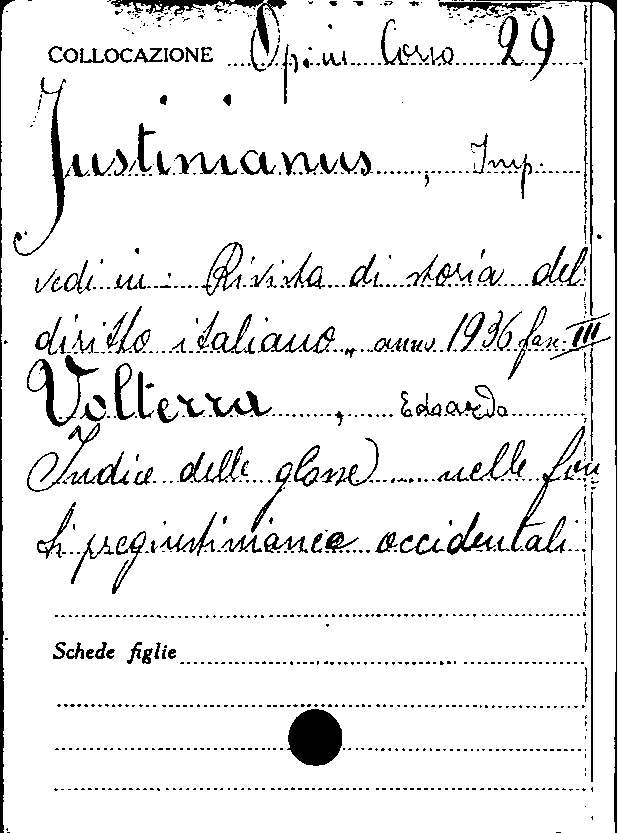 COLLOCAZIONE Opin Corso 29
Justinianus, Imp.
vedi in: Rivista di storia del
diritto italiano,, anno 1936 fasc. III
Volterra, Edoardo
Indice delle glosse).... nelle fon
ti pregiustinianee occidentali
Schede figlie